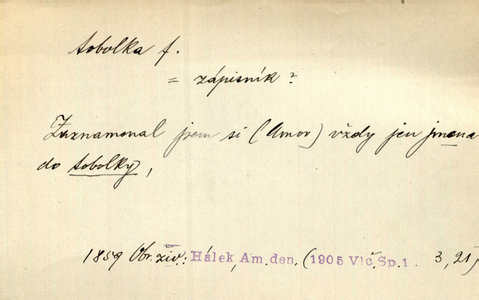 tobolka f.
= zápisník?
Zaznamenal jsem si (Amor) vždy jen jmena
do tobolky,
1859 Obr. živ. Hálek, Am. den. (1905 Vlč. Sp. 1. 3, 21)